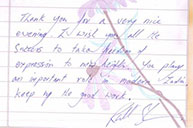 Thank you for a very nice
evening I wish you all the
success to take freedom of
expression to new heights. You play
an important role in modern India
keep up the good work.